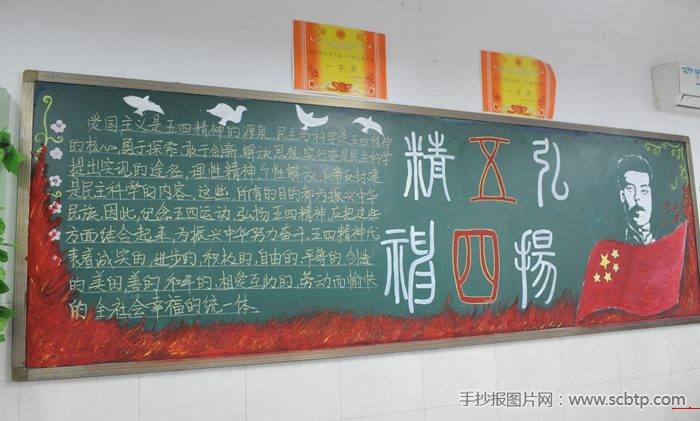 一等奖
一等奖
爱国主义是五四精神的源泉,民主与科学是五四精神
的核心,勇于探索、敢于创新、解放思想、实行变革是民主科学
提出实现的途径,理性精神、个性解放、反帝反封建
是民主科学的内容。这些,所有的目的都为振兴中华
民族。因此,纪念五四运动,弘扬五四精神,应把这些
方面结合起来,为振兴中华努力奋斗。五四精神代
表着诚实的、进步的、积极的、自由的、平等的、创造
的、美的、善的、和平的、相爱互助的、劳动而愉快
的,全社会幸福的统一体。
弘揚
五四
精神
手抄报图片网:www.scbtp.com